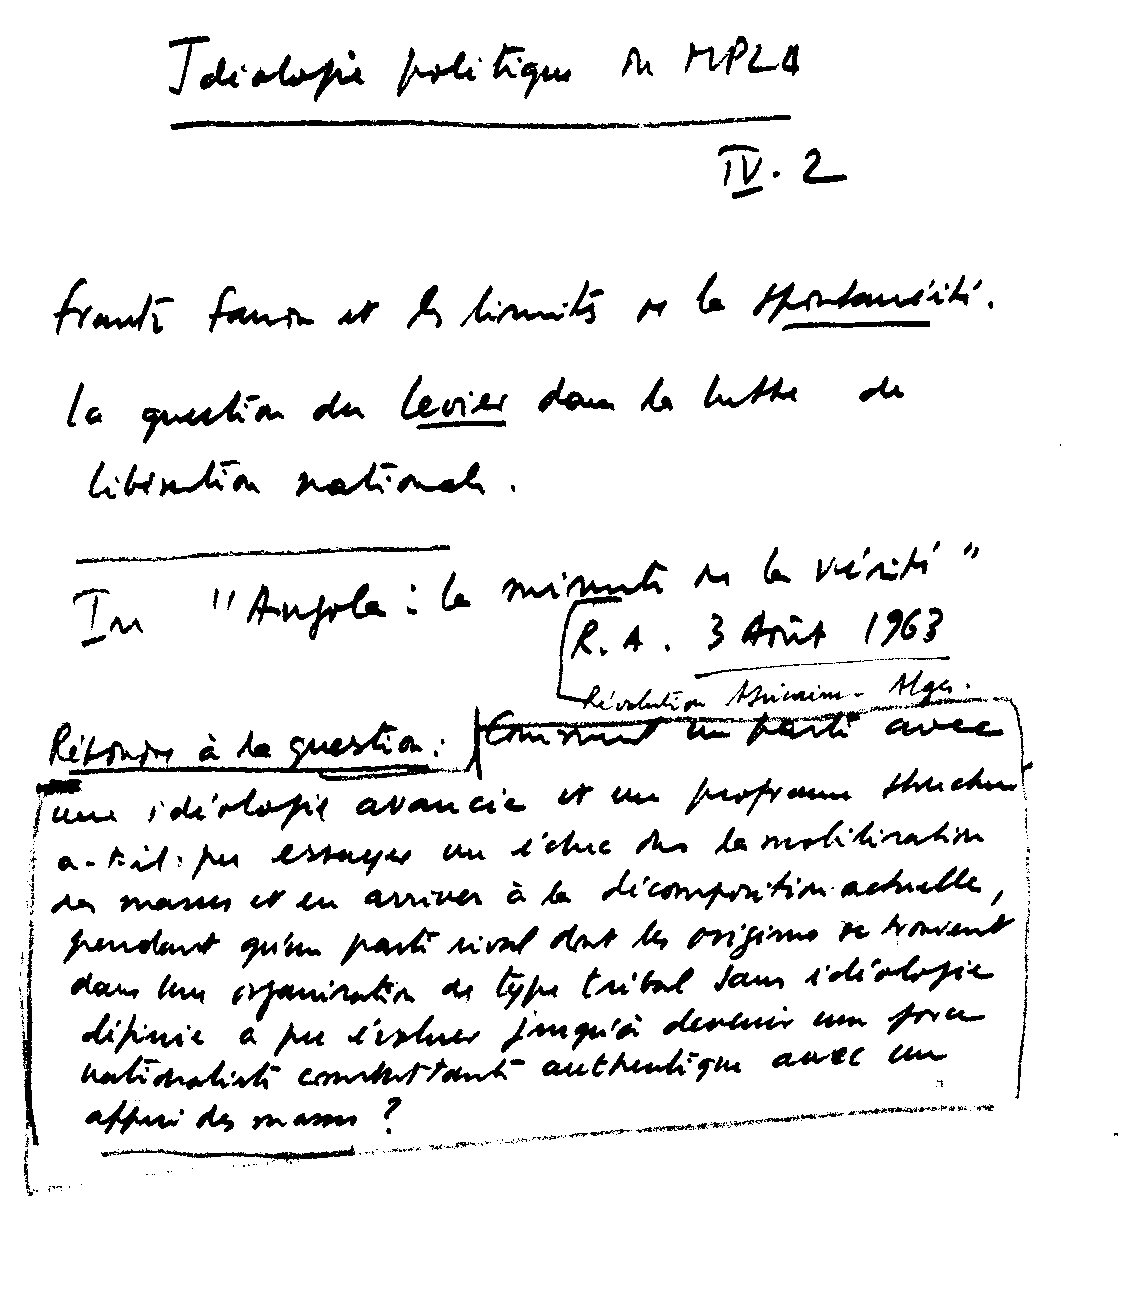 Idéologie politique du MPLA
IV.2
Frantz Fanon et les limites de la spontanéité.
La question du levier dans la lutte de
libération nationale.
In "Angola : la minute de la vérité"
R.A. 3 Août 1963
Révolution Africaine - Alger.
Répondre à la question : Comment un parti avec
une idéologie avancée et un programme structuré
a-t-il pu essuyer un échec dans la mobilisation
des masses et en arriver à la décomposition actuelle,
pendant qu'un parti rival dont les origines se trouvent
dans une organisation de type tribal sans idéologie
définie a pu évoluer jusqu'à devenir une force
nationaliste combattante authentique avec un
appui des masses ?